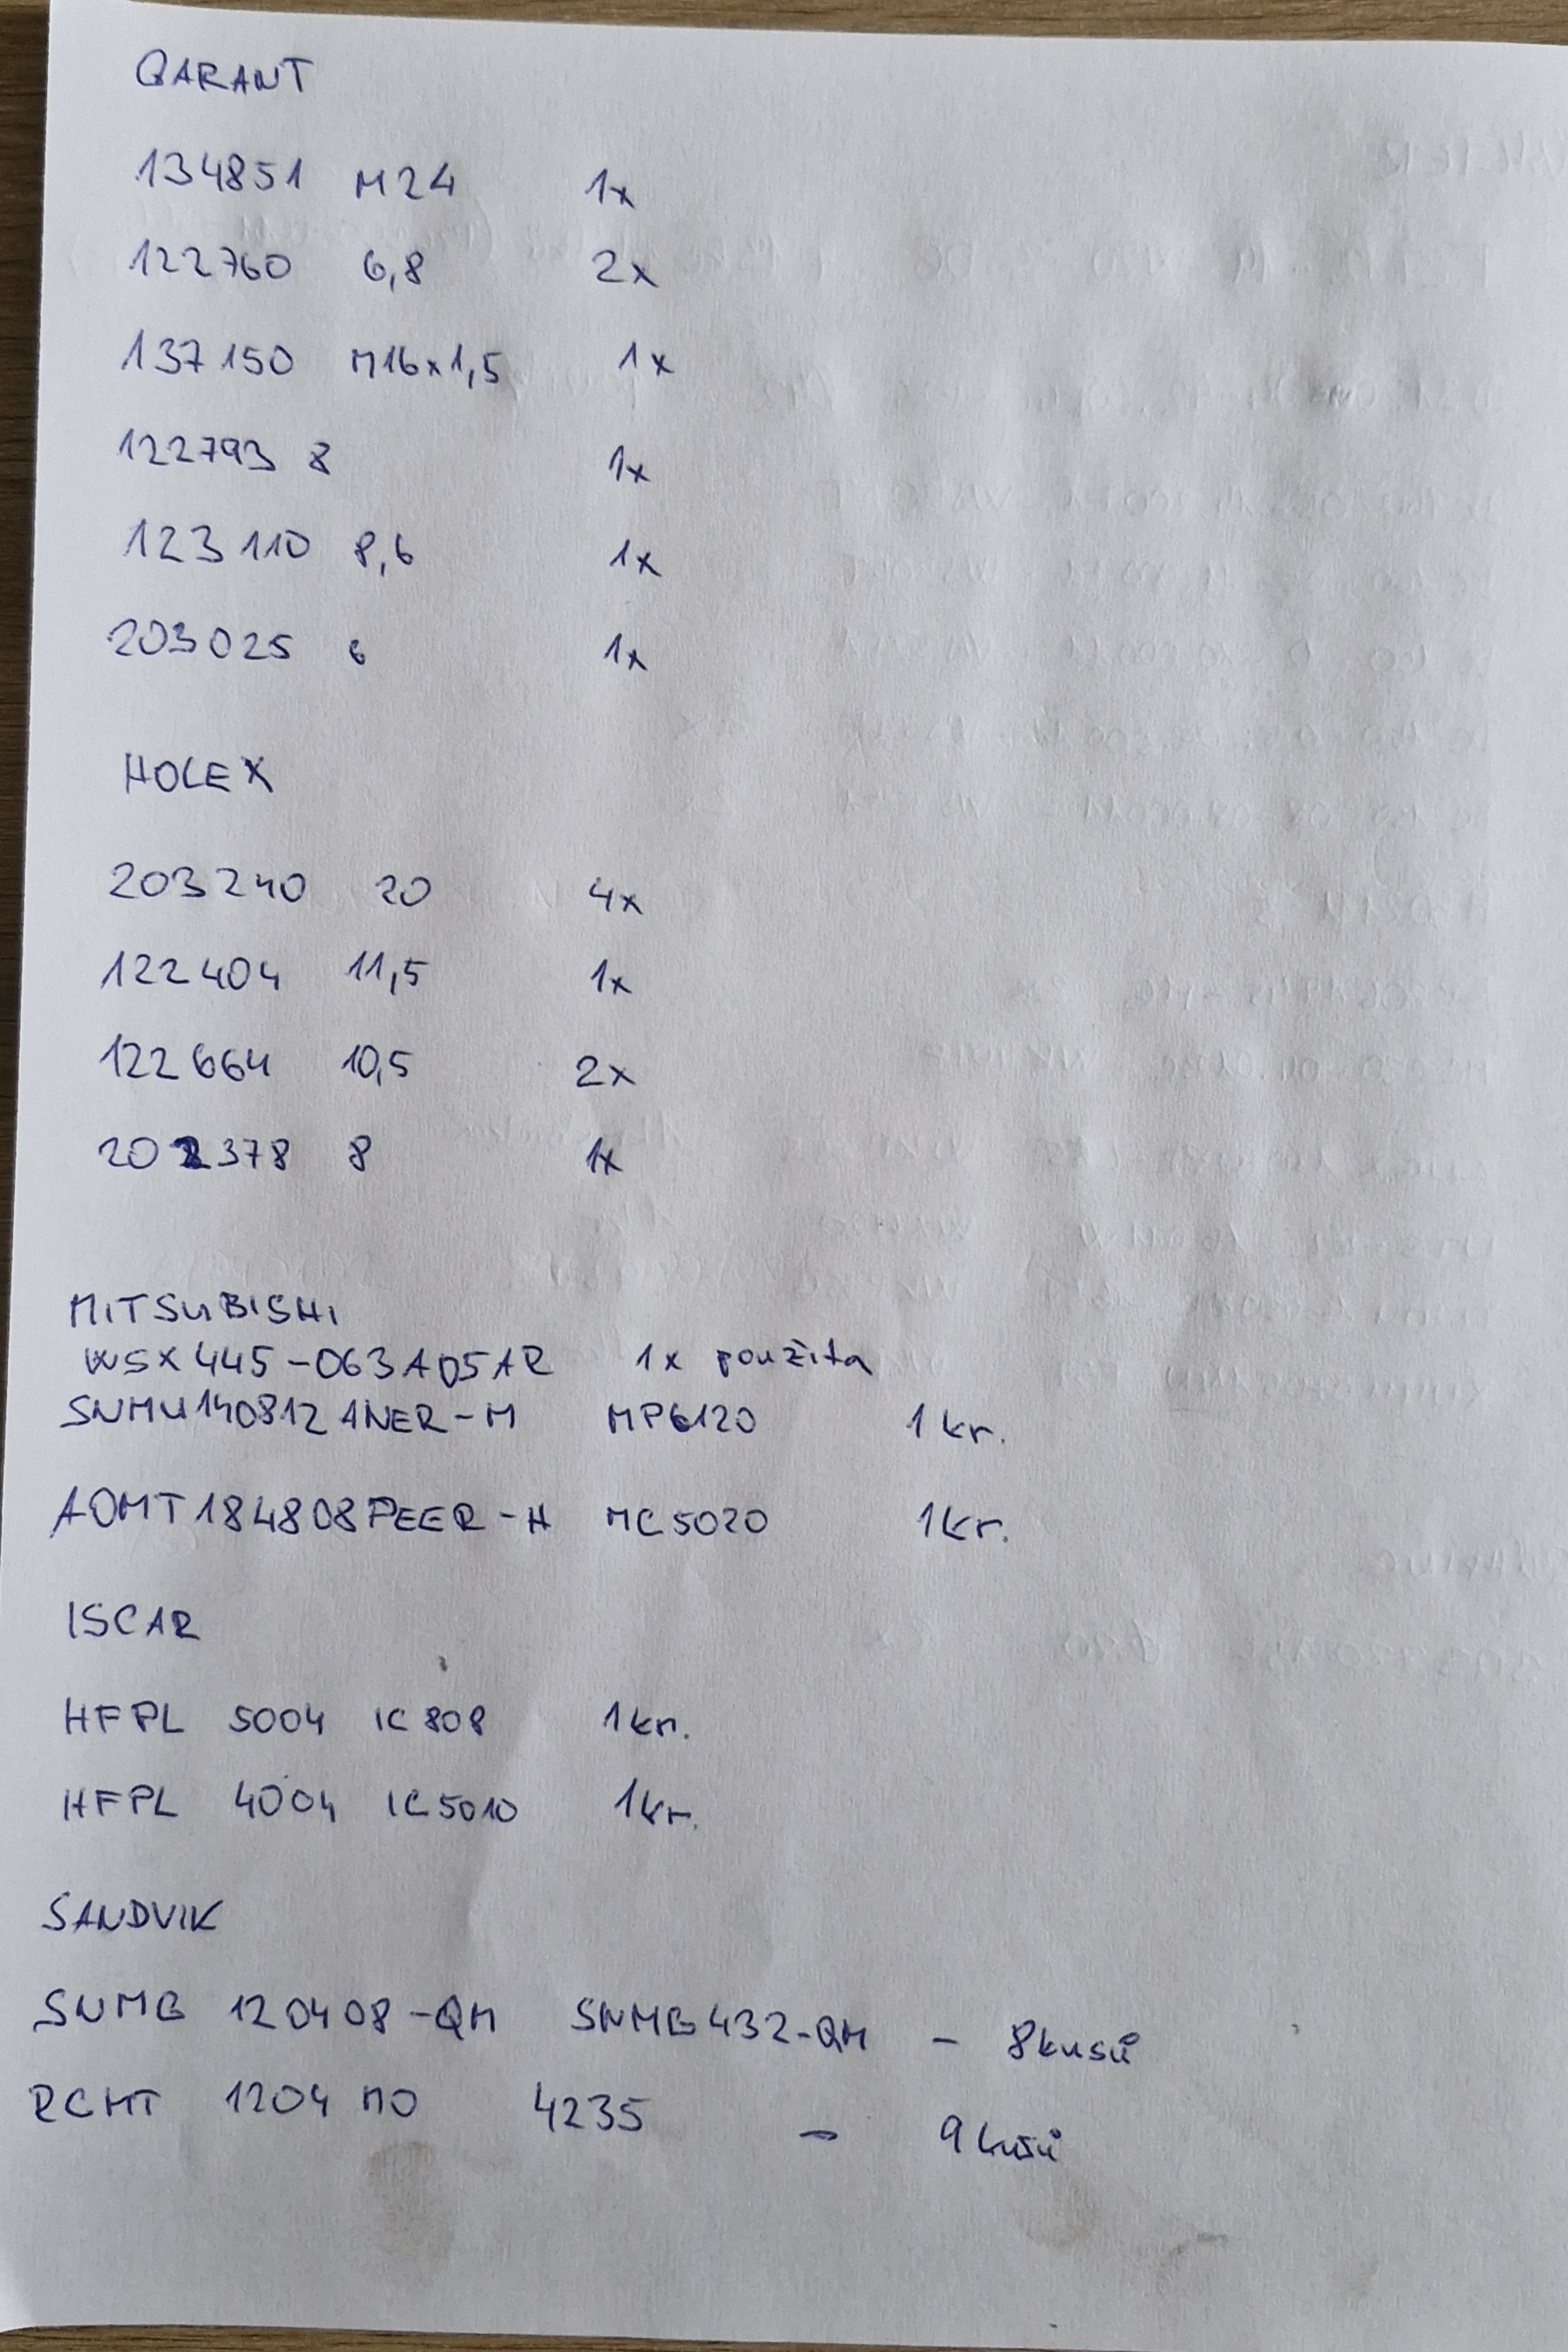 GARANT
134851 M24 1x
122760 6,8 2x
137150 M16x1,5 1x
122793 8 1x
123110 8,6 1x
203025 6 1x
HOLEX
203240 20 4x
122404 11,5 1x
122664 10,5 2x
202378 8 1x
MITSUBISHI
WSX445-063A05AR 1x použita
SNMU140812ANER-M MP6120 1kr.
AOMT184808PEER-H MC5020 1kr.
ISCAR
HFPL 5004 IC808 1kr.
HFPL 4004 IC5010 1kr.
SANDVIK
SNMG 120408-QM SNMG432-QM - 8kusů
RCMT 1204 M0 4235 - 9kusů